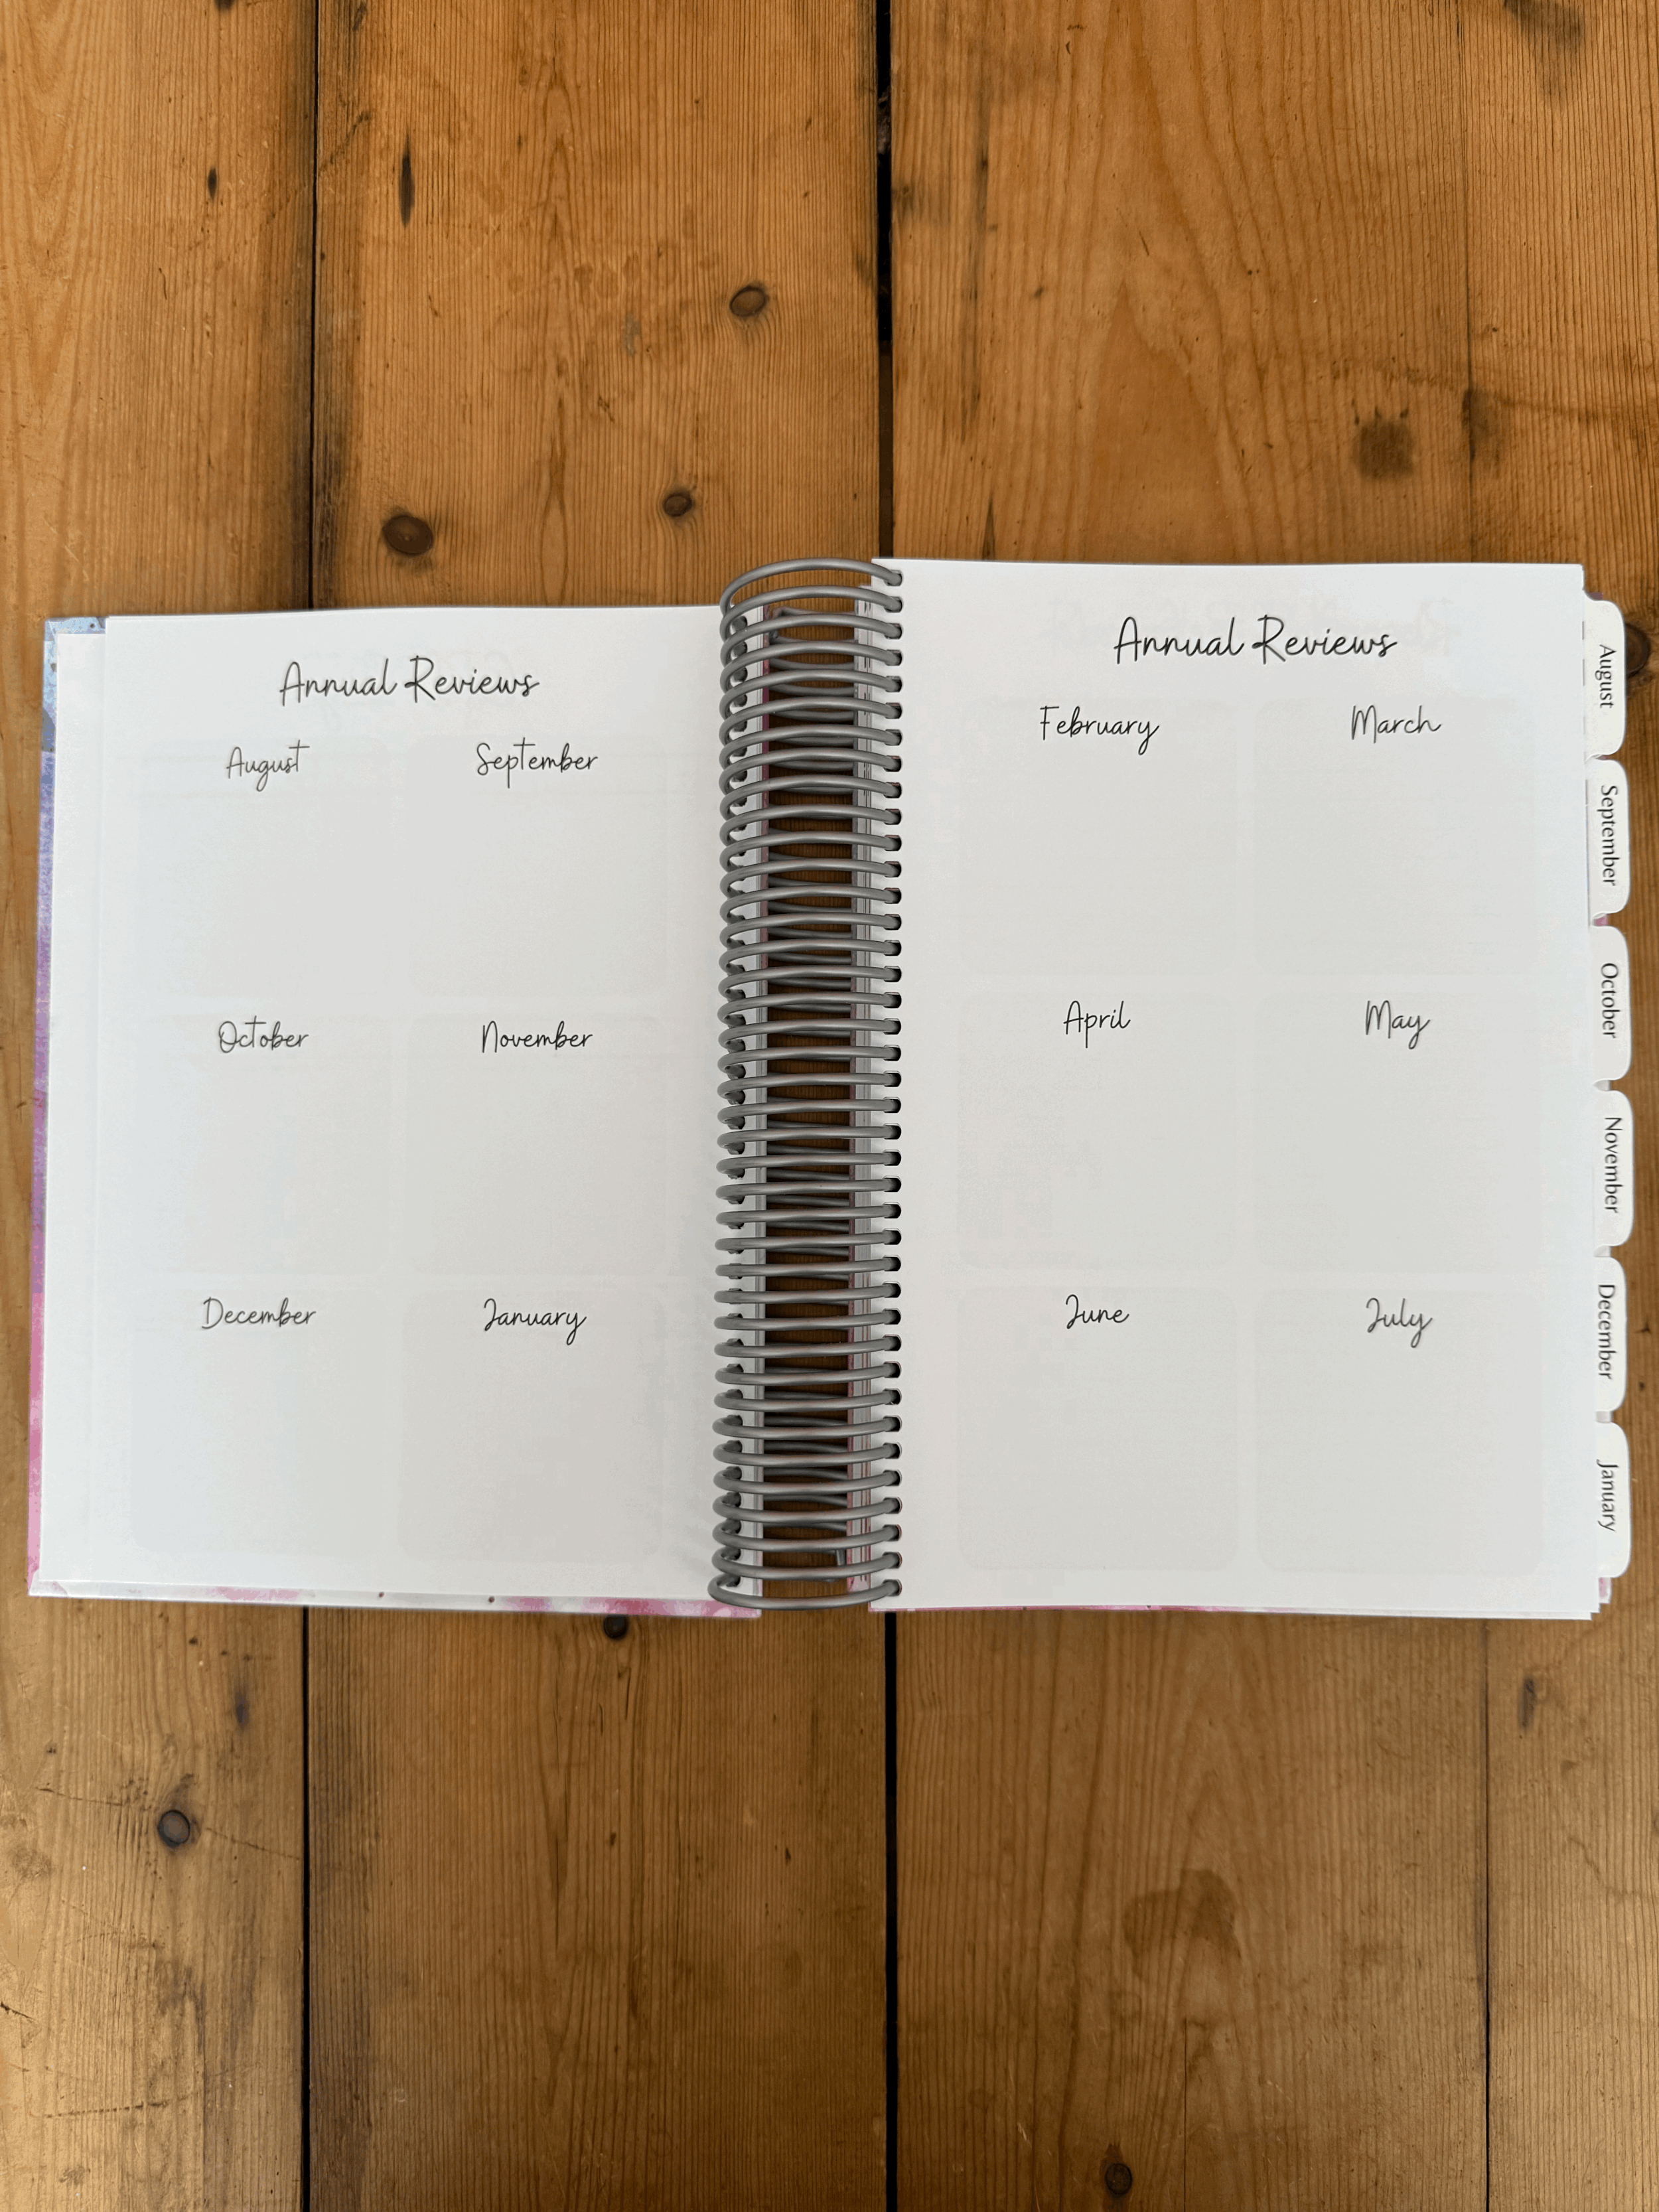 Annual Reviews
August September
October November
December January
Annual Reviews
February March
April May
June July
August
September
October
November
December
January